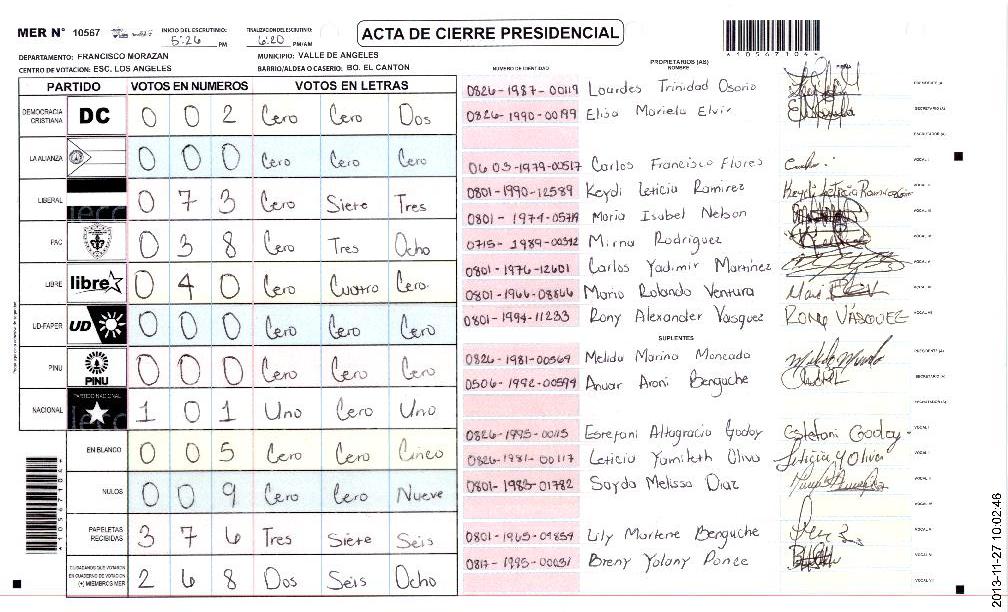 MER N° 10567
INICIO DEL ESCRUTINIO: 5:26 PM
FINALIZACION DEL ESCRUTINIO: 6:20 PM/AM
ACTA DE CIERRE PRESIDENCIAL
410567104
DEPARTAMENTO: FRANCISCO MORAZAN
MUNICIPIO: VALLE DE ANGELES
CENTRO DE VOTACION: ESC. LOS ANGELES
BARRIO/ALDEA O CASERIO: BO. EL CANTON
PARTIDO VOTOS EN NUMEROS VOTOS EN LETRAS
DEMOCRACIA CRISTIANA DC 0 0 2 Cero Cero Dos
LA ALIANZA 0 0 0 Cero Cero Cero
LIBERAL 0 7 3 Cero Siete Tres
PAC 0 3 8 Cero Tres Ocho
LIBRE libre 0 4 0 Cero Cuatro Cero
UD-FAPER UD 0 0 0 Cero Cero Cero
PINU PINU 0 0 0 Cero Cero Cero
NACIONAL PARTIDO NACIONAL 1 0 1 Uno Cero Uno
EN BLANCO 0 0 5 Cero Cero Cinco
NULOS 0 0 9 Cero Cero Nueve
PAPELETAS RECIBIDAS 3 7 6 Tres Siete Seis
CIUDADANOS QUE VOTARON EN CUADERNO DE VOTACION (+) MIEMBROS MER 2 6 8 Dos Seis Ocho
NUMERO DE IDENTIDAD
PROPIETARIOS (AS)
NOMBRE
0826-1987-00119 Lourdes Trinidad Osorio PRESIDENTE (A)
0826-1990-00199 Elisa Mariela Elvir SECRETARIO (A)
ESCRUTADOR (A)
0603-1979-00517 Carlos Francisco Flores VOCAL I
0801-1990-12589 Keydi Leticia Ramirez
0801-1974-05719 Maria Isabel Nelson
0715-1989-00312 Mirna Rodriguez
0801-1976-12601 Carlos Yadimir Martinez
0801-1966-08866 Mario Rolando Ventura
0801-1994-11233 Rony Alexander Vasquez RONY VASQUEZ
SUPLENTES
0826-1981-00369 Melida Marina Moncada PRESIDENTE (A)
0506-1992-00599 Anuar Aroni Benguche SECRETARIO (A)
ESCRUTADOR (A)
0826-1995-00115 Estefani Altagracia Godoy Estefani Godoy VOCAL I
0826-1981-00117 Leticia Yamileth Oliva Leticia Y Oliva
0801-1983-01782 Sayda Melissa Diaz
0801-1965-01859 Lily Marlene Benguche
0817-1995-00031 Breny Yolany Ponce
2013-11-27 10:02:46